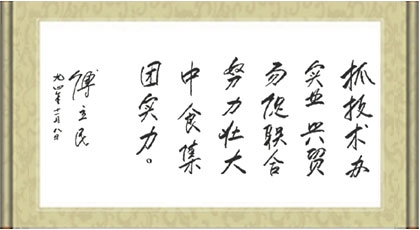 抓技术办
实业兴贸
易促联合
努力壮大
中食集
团实力。
傅立民
九四年十一月八日